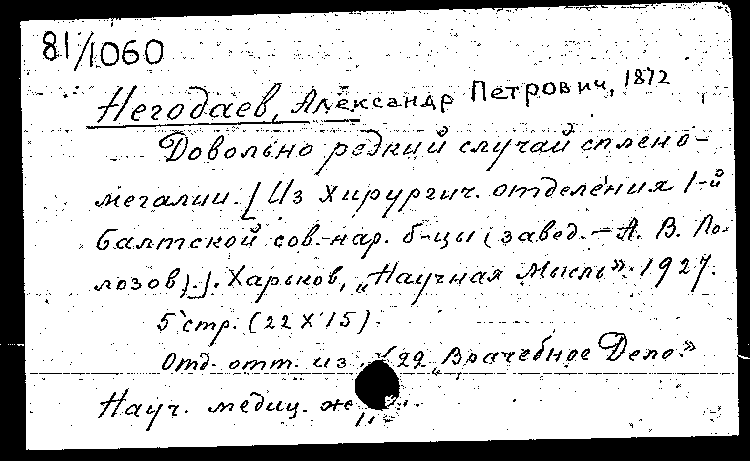 81/1060
Негодаев, Александр Петрович, 1872
Довольно редкий случай сплено-
мегалии. [Из хирургич. отделения 1-й
Балтской сов.-нар. б-цы (завед. - А. В. По-
лозов).]. Харьков, „Научная Мысль". 1927.
5 стр. (22 X 15).
Отд. отт. из „Врачебное Дело."
Науч. медиц.